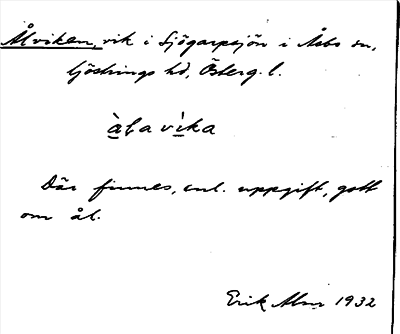 Ålviken, vik i Sjögarpsjön i Åsbo sn,
Göstrings hd, Österg. l.
àlavìka
Där finnes, enl. uppgift, gott
om ål.
Erik Alm 1932